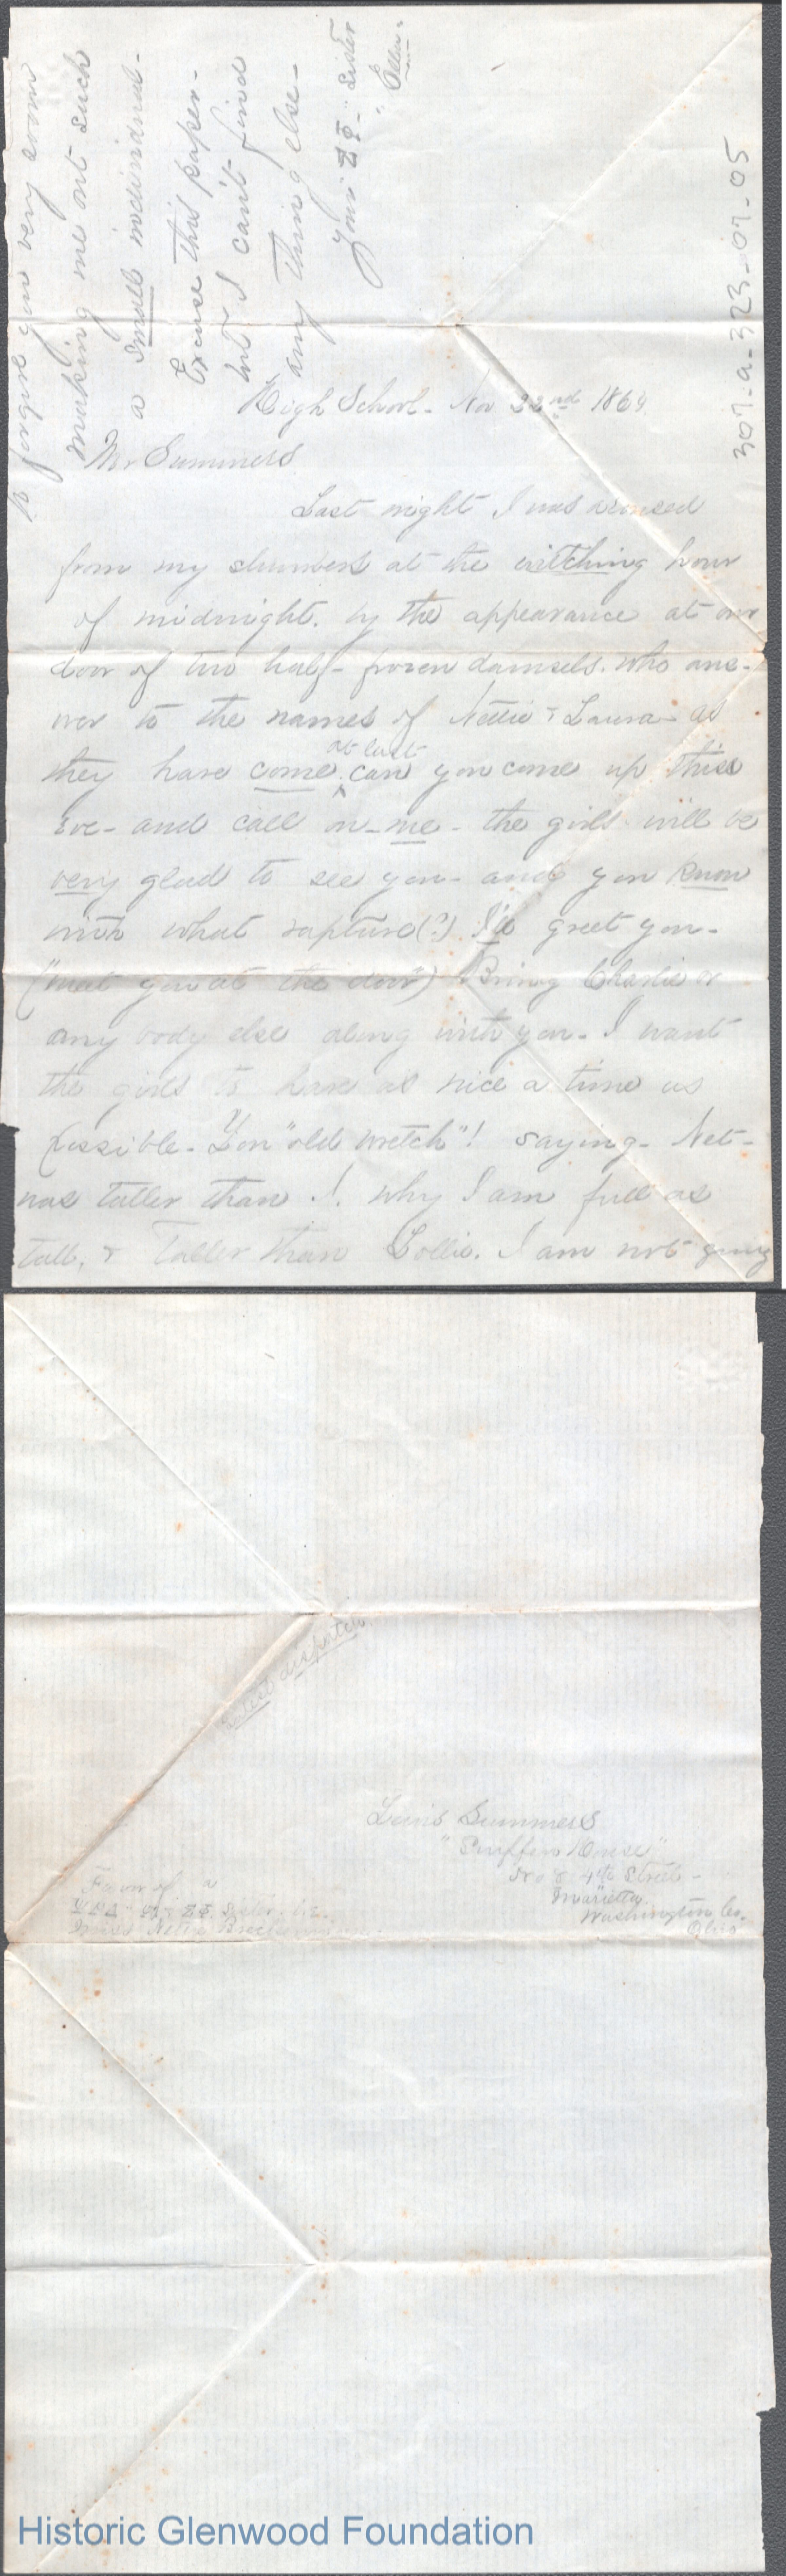 High School - Nov 22nd 1864
Mr Summers
Last night I was aroused
from my slumbers at the witching hour
of midnight. by the appearance at our
door of two half-frozen damsels. who ans-
wer to the names of Nettie & Laura - as
they have come at last can you come up this
eve - and call on - me - the girls will be
very glad to see you - and you know
with what rapture(?) I'll greet you -
("meet you at the door") Bring Charlie or
any body else along with you - I want
the girls to have as nice a time as
possible - You "old wretch"! saying - Net -
was taller than I. why I am full as
tall, & taller than Lollie. I am not going
to forgive you very soon
making me out such
a small individual -
Excuse this paper -
but I can't find
any thing else -
Your Sister
"Ellen"
307-a-323-07-05
Latest dispatch
Lewis Summers
No 8 4th Street -
Marietta
Washington Co.
Ohio
Favor of a
Sister
Miss Nettie
Historic Glenwood Foundation